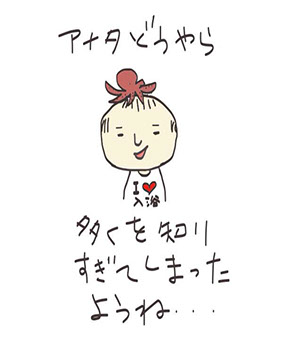 アナタどうやら
I ♥
入浴
多くを知り
すぎてしまった
ようね...